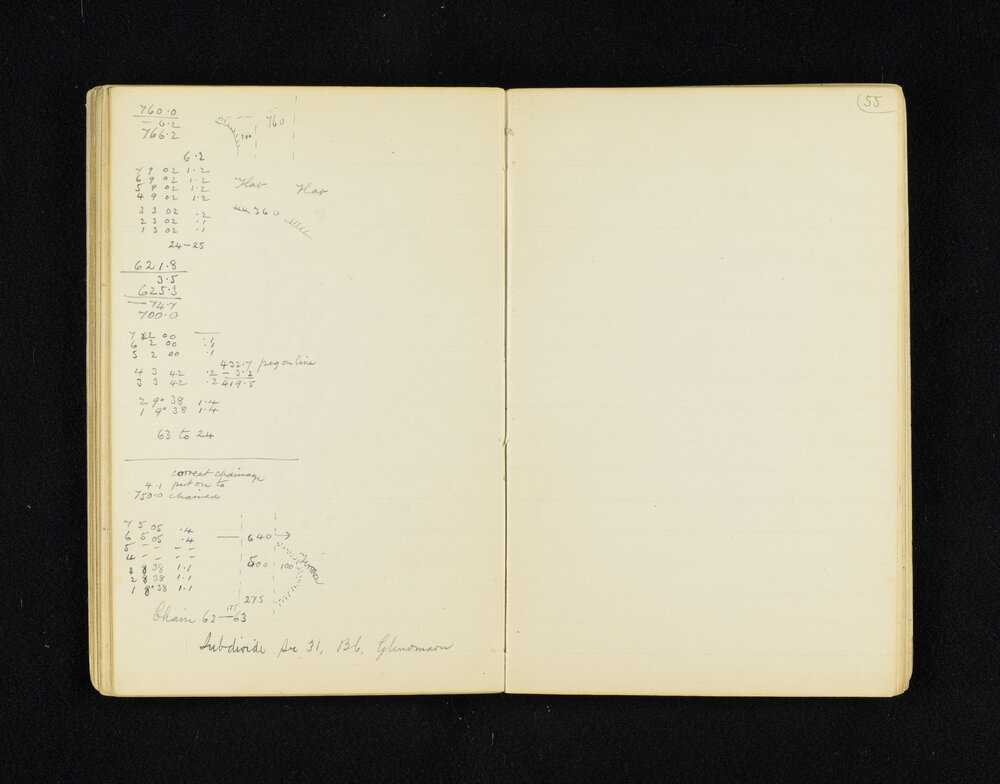 760.0
— 6.2
766.2
760
100
6.2
7 9 02 1.2
6 9 02 1.2
5 9 02 1.2
4 9 02 1.2
Flat Flat
3 3 02 .2
2 3 02 .1
1 3 02 .1
340
24-25
621.8
3.5
625.3
— 74.7
700.0
7 2 00 —
6 2 00 .1
5 2 00 .1
432.7 peg on line
4 3 42 .2 — 3.2
3 3 42 .2 419.5
2 9° 38 1.4
1 9° 38 1.4
63 to 24
correct chainage
4.1 put on to
750.0 chained
7 5 05 .4
6 5 05 .4
5 – – – –
4 – – – –
3 8 38 1.1
2 8 38 1.1
1 8° 38 1.1
— 640 →
500 100
275
Chain 62—63
Subdivide Sec 31, Bk. Glenomaru
55